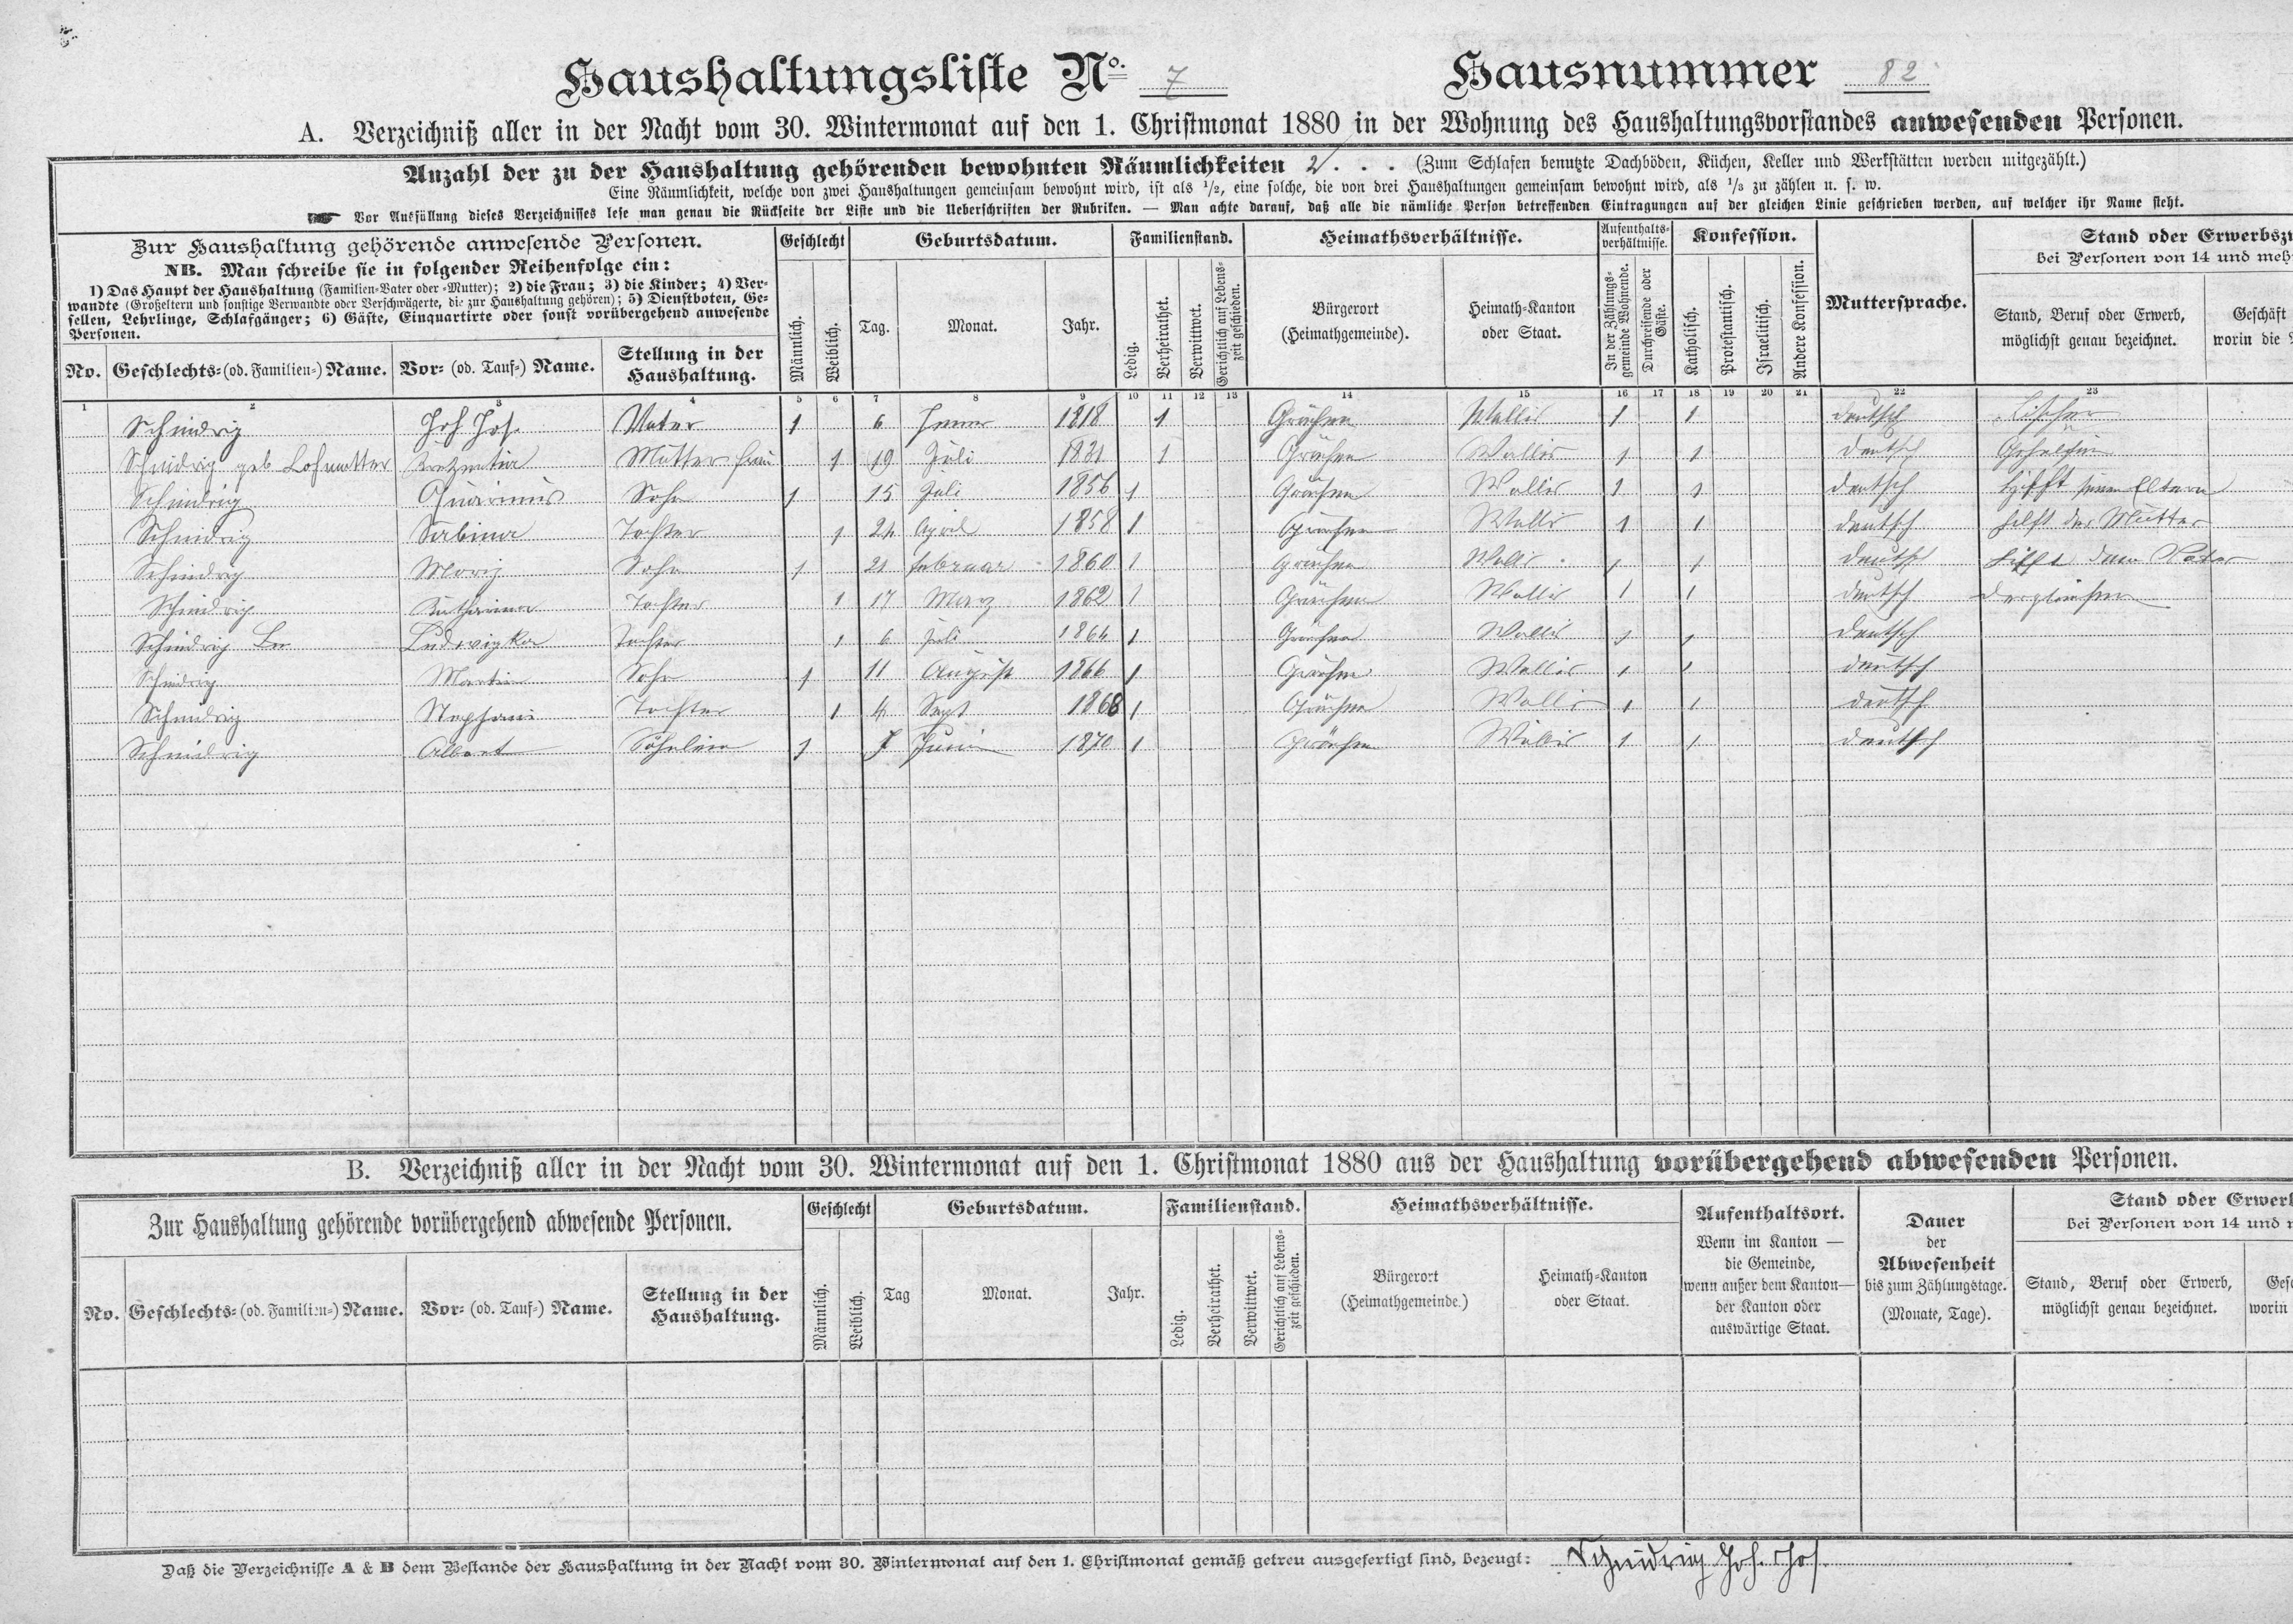 Haushaltungsliste No. 7
Hausnummer 82
A. Verzeichniß aller in der Nacht vom 30. Wintermonat auf den 1. Christmonat 1880 in der Wohnung des Haushaltungsvorstandes anwesenden Personen.
Anzahl der zu der Haushaltung gehörenden bewohnten Räumlichkeiten 2 . . . (Zum Schlafen benutzte Dachböden, Küchen, Keller und Werkstätten werden mitgezählt.)
Eine Räumlichkeit, welche von zwei Haushaltungen gemeinsam bewohnt wird, ist als 1/2, eine solche, die von drei Haushaltungen gemeinsam bewohnt wird, als 1/3 zu zählen u. s. w.
☛ Vor Ausfüllung dieses Verzeichnisses lese man genau die Rückseite der Liste und die Ueberschriften der Rubriken. — Man achte darauf, daß alle die nämliche Person betreffenden Eintragungen auf der gleichen Linie geschrieben werden, auf welcher ihr Name steht.
Zur Haushaltung gehörende anwesende Personen.
NB. Man schreibe sie in folgender Reihenfolge ein:
1) Das Haupt der Haushaltung (Familien-Vater oder -Mutter); 2) die Frau; 3) die Kinder; 4) Ver-
wandte (Großeltern und sonstige Verwandte oder Verschwägerte, die zur Haushaltung gehören); 5) Dienstboten, Ge-
sellen, Lehrlinge, Schlafgänger; 6) Gäste, Einquartirte oder sonst vorübergehend anwesende
Personen.
No. Geschlechts- (od. Familien-) Name. Vor- (od. Tauf-) Name. Stellung in der
Haushaltung.
Geschlecht
Männlich. Weiblich.
Geburtsdatum.
Tag. Monat. Jahr.
Familienstand.
Ledig. Verheirathet. Verwittwet. Gerichtlich auf Lebens-
zeit geschieden.
Heimathsverhältnisse.
Bürgerort
(Heimathgemeinde).
Heimath-Kanton
oder Staat.
Aufenthalts-
verhältnisse.
In der Zählungs-
gemeinde Wohnende.
Durchreisende oder
Gäste.
Konfession.
Katholisch. Protestantisch. Israelitisch. Andere Konfession.
Muttersprache.
Stand oder Erwerbsz
bei Personen von 14 und meh
Stand, Beruf oder Erwerb,
möglichst genau bezeichnet.
Geschäft
worin die
1 2 3 4 5 6 7 8 9 10 11 12 13 14 15 16 17 18 19 20 21 22 23
Schnidrig Joh Jos. Vater 1 6 Jenner 1818 1 Grächen Wallis 1 1 deutsch
Schnidrig geb Lochmatter Mutter frau 1 19 Juli 1831 1 Grächen Wallis 1 1 deutsch Gehelfin
Schnidrig Quirinus Sohn 1 15 Juli 1856 1 Grächen Wallis 1 1 deutsch hilft seinen Eltern
Schnidrig Sabina Tochter 1 24 April 1858 1 Grächen Wallis 1 1 deutsch hilft der Mutter
Schnidrig Moriz Sohn 1 21 februar 1860 1 Grächen Wallis 1 1 deutsch hilft dem Vater
Schnidrig Katharina Tochter 1 17 März 1862 1 Grächen Wallis 1 1 deutsch dergleichen
Schnidrig Ludwigka Tochter 1 6 Juli 1864 1 Grächen Wallis 1 1 deutsch
Schnidrig Martin Sohn 1 11 August 1866 1 Grächen Wallis 1 1 deutsch
Schnidrig Stephani Tochter 1 4 Sept 1868 1 Grächen Wallis 1 1 deutsch
Schnidrig Albert Söhnlein 1 7 Juni 1870 1 Grächen Wallis 1 1 deutsch
B. Verzeichniß aller in der Nacht vom 30. Wintermonat auf den 1. Christmonat 1880 aus der Haushaltung vorübergehend abwesenden Personen.
Zur Haushaltung gehörende vorübergehend abwesende Personen.
No. Geschlechts- (od. Familien-) Name. Vor- (od. Tauf-) Name. Stellung in der
Haushaltung.
Geschlecht
Männlich. Weiblich.
Geburtsdatum.
Tag Monat. Jahr.
Familienstand.
Ledig. Verheirathet. Verwittwet. Gerichtlich auf Lebens-
zeit geschieden.
Heimathsverhältnisse.
Bürgerort
(Heimathgemeinde.)
Heimath-Kanton
oder Staat.
Aufenthaltsort.
Wenn im Kanton —
die Gemeinde,
wenn außer dem Kanton—
der Kanton oder
auswärtige Staat.
Dauer
der
Abwesenheit
bis zum Zählungstage.
(Monate, Tage).
Stand oder Erwerb
bei Personen von 14 und
Stand, Beruf oder Erwerb,
möglichst genau bezeichnet.
Gesch
worin
Daß die Verzeichnisse A & B dem Bestande der Haushaltung in der Nacht vom 30. Wintermonat auf den 1. Christmonat gemäß getreu ausgefertigt sind, bezeugt: Schnidrig Joh. Jos.